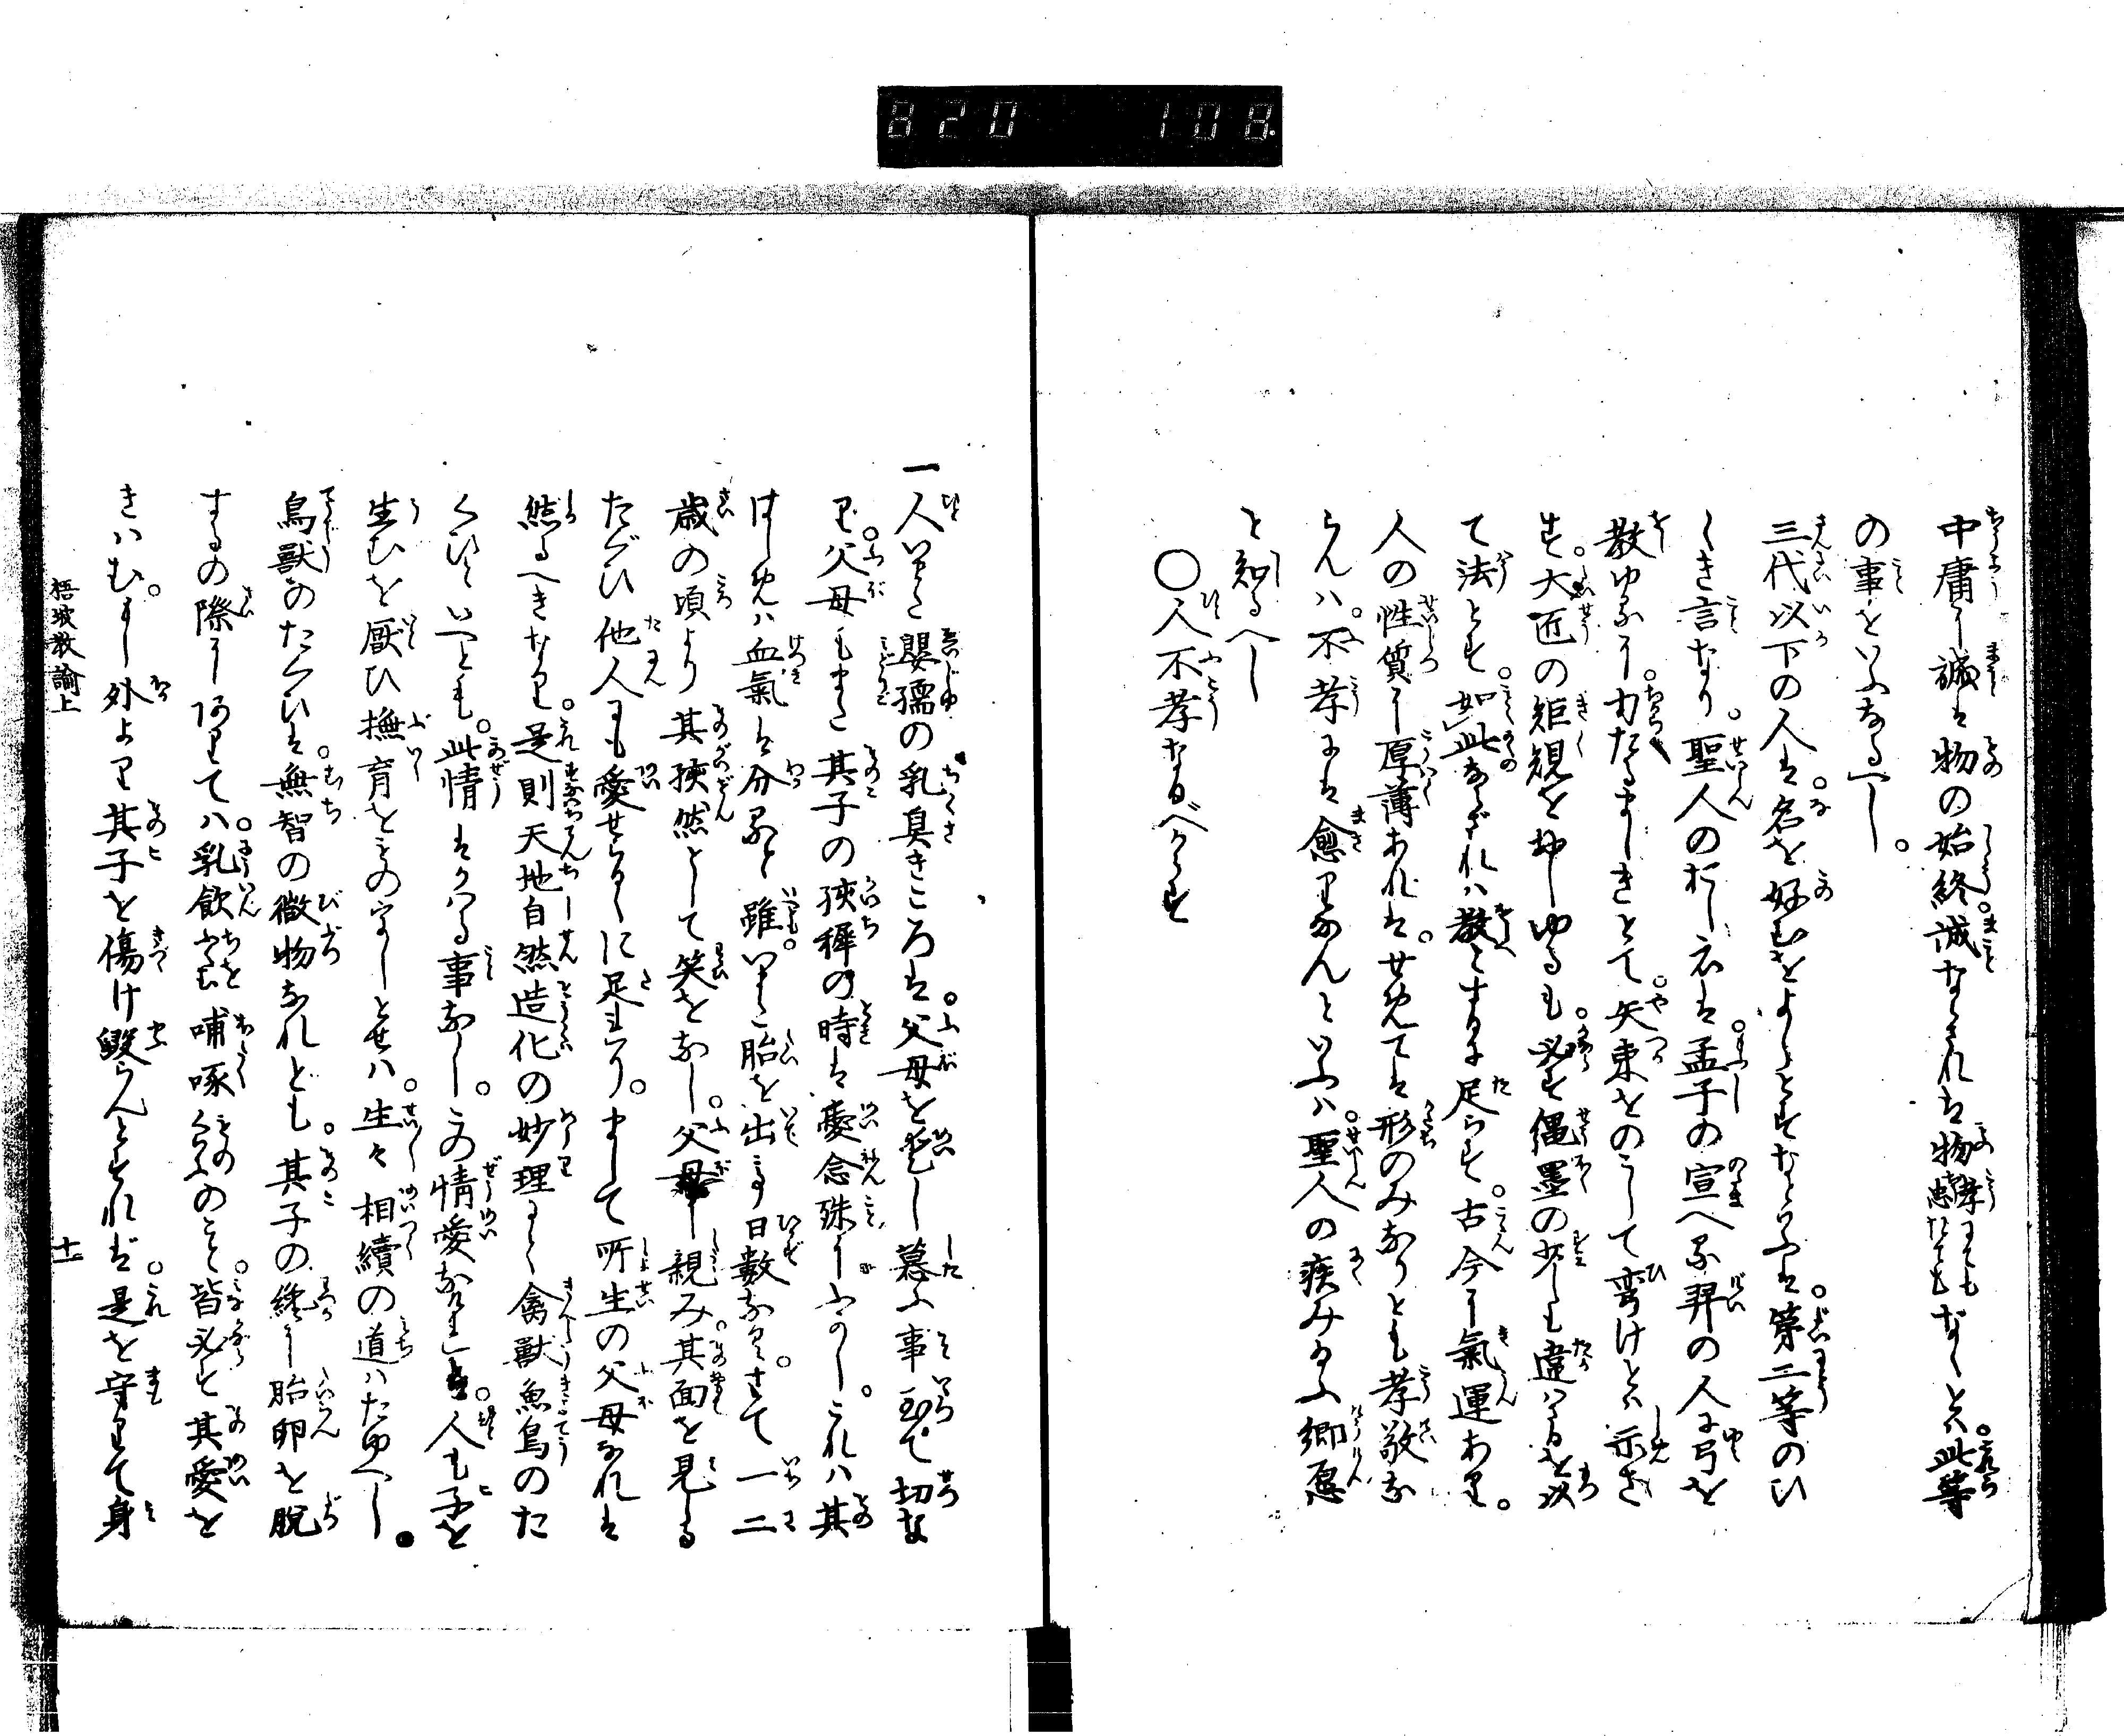 820 108
中庸に誠は物の始終。誠ならされは物孝忠にてもなしとは。此等
の事をいふなるへし。
三代以下の人は。名を好むをよしとすなといふは。第二等のひ
くき言なり。聖人のおしへは。孟子の宣へる羿の人に弓を
教ゆるに。力たるましきとて。矢束をのうして弯けとは示さ
す。大匠の矩規を押しゆるも。必す縄墨の少しも違はさるを以
て法とす。如此あらされは教とするに足らす。古今に氣運あり。
人の性質に厚薄あれは。せめては形のみなりとも孝敬な
らんハ。不孝には愈りなんといふハ。聖人の疾みたまふ郷愿
と知るへし
○人不孝なるべからす
一人いまた嬰孺の乳臭きころは。父母を愛し慕ふ事至て切な
り。父母もまた其子の孩穉の時は憂念殊にふかし。これハ其
はしめハ血氣は分ると雖。いまた胎を出る日数なし。さて一二
歳の頃より其孩然として笑をなし。父母に親み。其面を見る
たぐひ他人も愛せらるゝに足れり。まして所生の父母なれは
然るへきなり。是則天地自然造化の妙理にて禽獸魚鳥のた
くひといへとも。此情はかはる事なし。この情愛なけれは。人も子を
生むを厭ひ撫育をものうしとせハ。生々相續の道ハたゆへし。
鳥獸のたくひは。無智の微物なれとも。其子の纔に胎卵を脱
するの際にありてハ。乳飲ちをのむ哺啄ものくふのこと。皆必す其愛を
きハむ。もし外より其子を傷け毀らんとすれば。是を守りて身
梧坡教諭上 十一